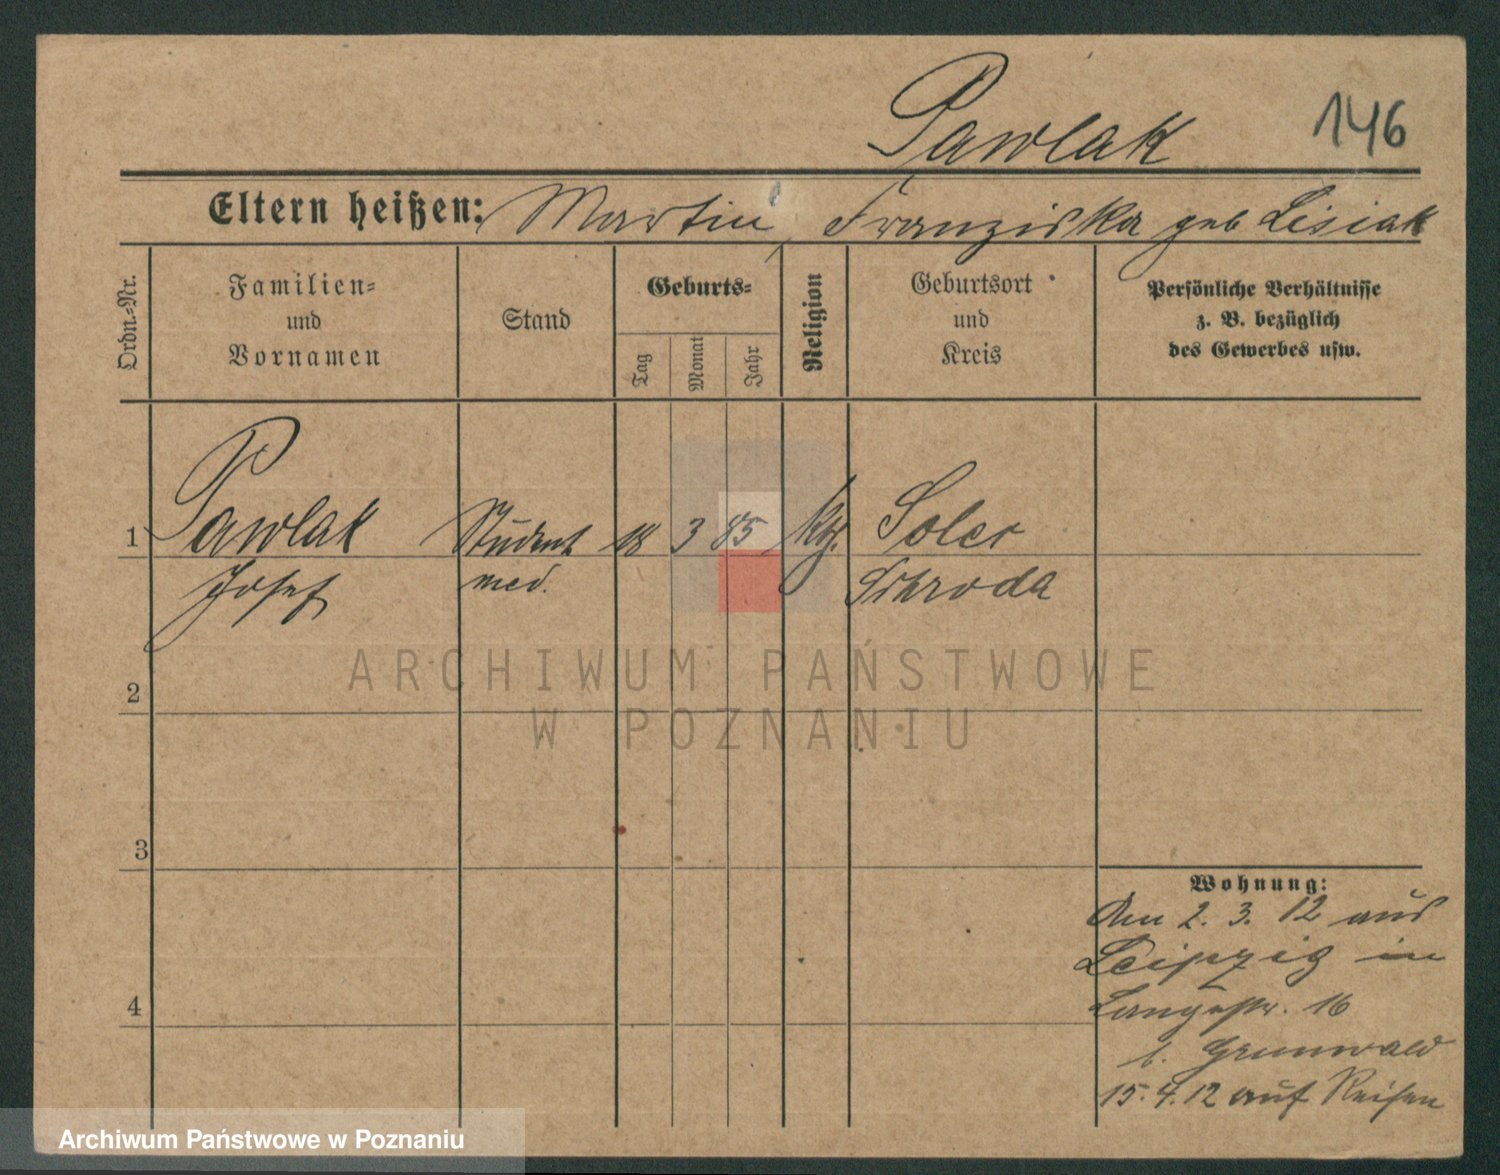 Pawlak 146
Eltern heißen: Martin, Franziska geb Lisiak
Ordn.-Nr.
Familien-
und
Vornamen
Stand
Geburts-
Tag
Monat
Jahr
Religion
Geburtsort
und
Kreis
Persönliche Verhältnisse
z. B. bezüglich
des Gewerbes usw.
1 Pawlak Student 18 3 85 Kth. Solec
Josef med. Schroda
2
ARCHIWUM PAŃSTWOWE
W POZNANIU
3
Wohnung:
Am 2. 3. 12 aus
Leipzig in
4
Langestr. 16
b. Grunwald
15. 4. 12 auf Reisen
Archiwum Państwowe w Poznaniu